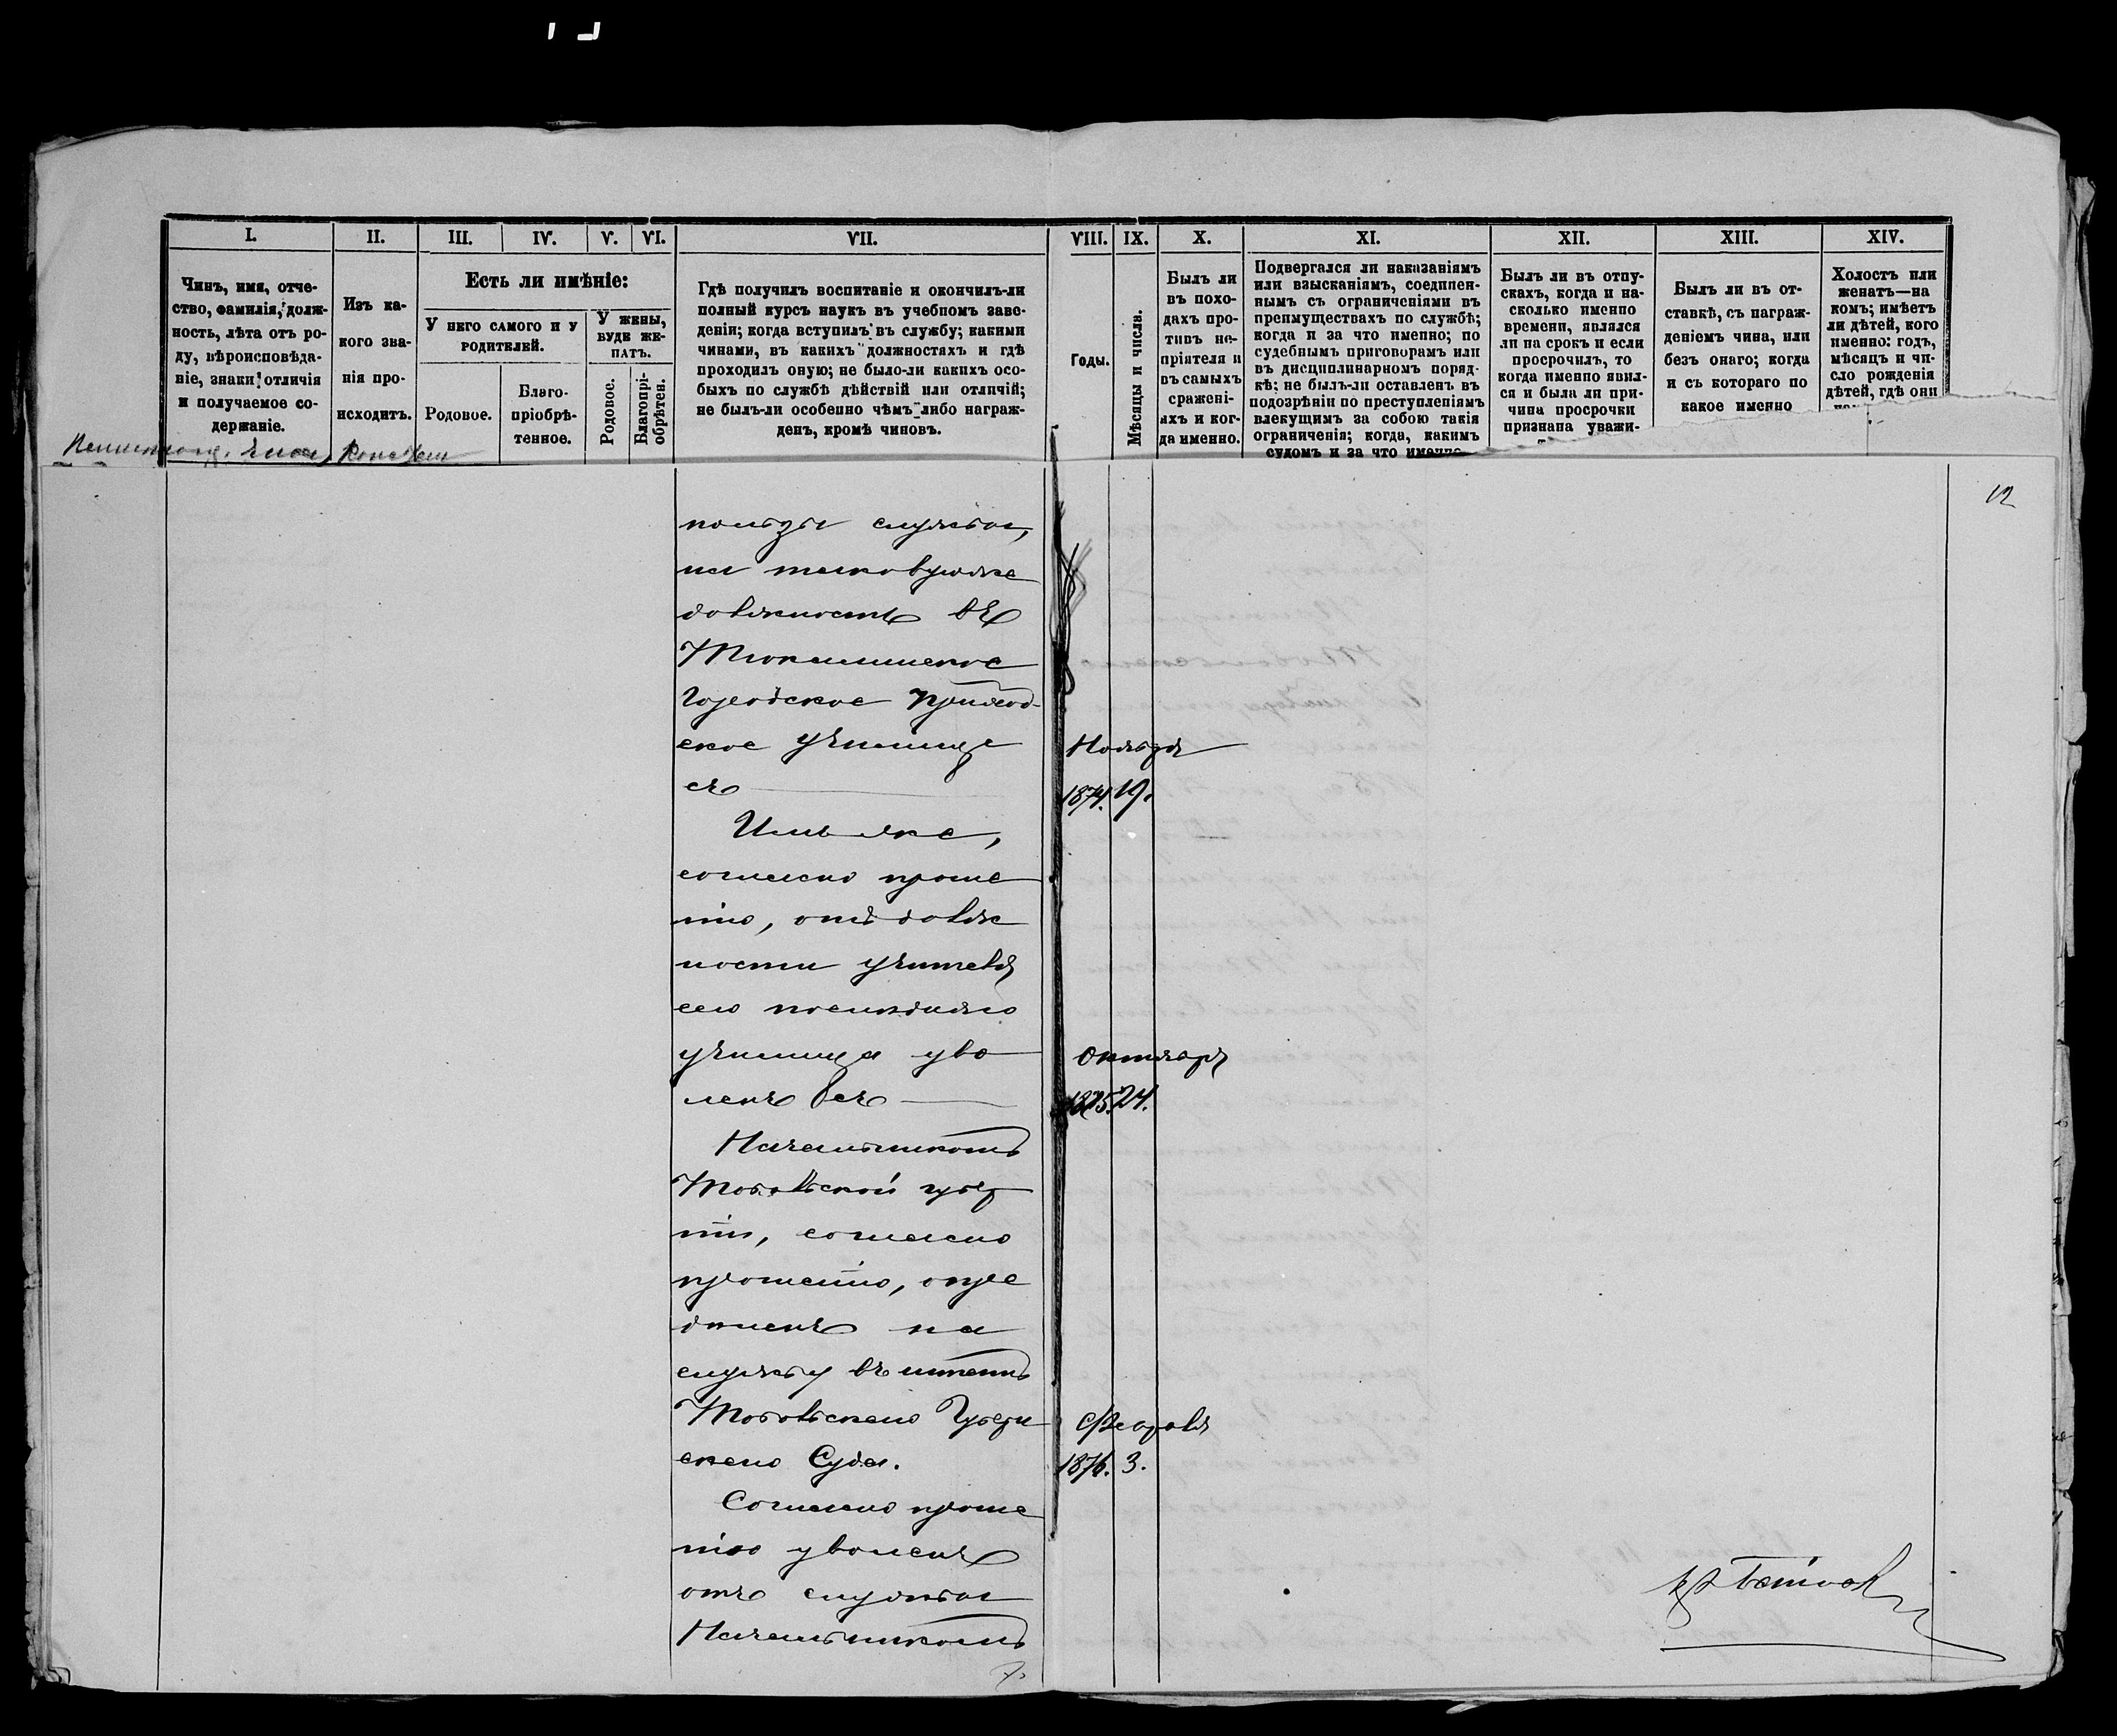 I. II. III. IV. V. VI. VII. VIII. IX. X. XI. XII. XIII. XIV.
Чинъ, имя, отче-
ство, фамилія, долж-
ность, лѣта отъ ро-
ду, вѣроисповѣда-
ніе, знаки отличія
и получаемое со-
держаніе.
Изъ ка-
кого зва-
нія про-
исходитъ.
Есть ли имѣніе:
У него самого и у
родителей.
У жены,
буде же-
натъ.
Родовое.
Благо-
пріобрѣ-
тенное.
Родовое.
Благопрі-
обрѣтен.
Гдѣ получилъ воспитаніе и окончилъ-ли
полный курсъ наукъ въ учебномъ заве-
деніи; когда вступилъ въ службу; какими
чинами, въ какихъ должностяхъ и гдѣ
проходилъ оную; не было-ли какихъ осо-
быхъ по службѣ дѣйствій или отличій;
не былъ-ли особенно чѣмъ либо награж-
денъ, кромѣ чиновъ.
Годы.
Мѣсяцы и числа.
Былъ ли
въ похо-
дахъ про-
тивъ не-
пріятеля и
въ самыхъ
сражені-
яхъ и ког-
да именно.
Подвергался ли наказаніямъ
или взысканіямъ, соединен-
нымъ съ ограниченіями въ
преимуществахъ по службѣ;
когда и за что именно; по
судебнымъ приговорамъ или
въ дисциплинарномъ поряд-
кѣ; не былъ-ли оставленъ въ
подозрѣніи по преступленіямъ
влекущимъ за собою такія
ограниченія; когда, какимъ
судомъ и за что именно
Былъ ли въ отпу-
скахъ, когда и на-
сколько именно
времени, являлся
ли на срокъ и если
просрочилъ, то
когда именно явил-
ся и была ли при-
чина просрочки
признана уважи-
Былъ ли въ от-
ставкѣ, съ награж-
деніемъ чина, или
безъ онаго; когда
и съ котораго по
какое именно
Холостъ или
женатъ—на
комъ; имѣетъ
ли дѣтей, кого
именно: годъ,
мѣсяцъ и чи-
сло рожденія
дѣтей, гдѣ они
12
пользы службы,
на таковую же
должность въ
Тюкалинское
Городское приход-
ское училище
Ноября
съ 1874. 19.
Имъ же,
согласно проше
нію, отъ долж
ности учителя
сего послѣдняго
училища уво
Октября
ленъ съ 1875. 24.
Начальникомъ
Тобольской губер
ніи, согласно
прошенію, опре
дѣленъ на
службу въ штатъ
Тобольскаго Губерн
Февраля
скаго Суда. 1876. 3.
Согласно проше
нію уволенъ
отъ службы
Начальникомъ
7.